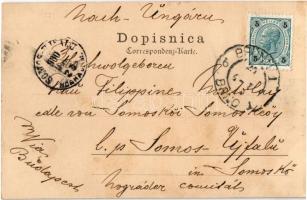 Nach-Ungarn
Dopisnica
Correspondenz-Karte.
Hochwolgeboren
Frau Filippine
edle von Somoskeöy
u. p Somos Ujfalú
in Somoskö
Nograder comität
via
Budapest